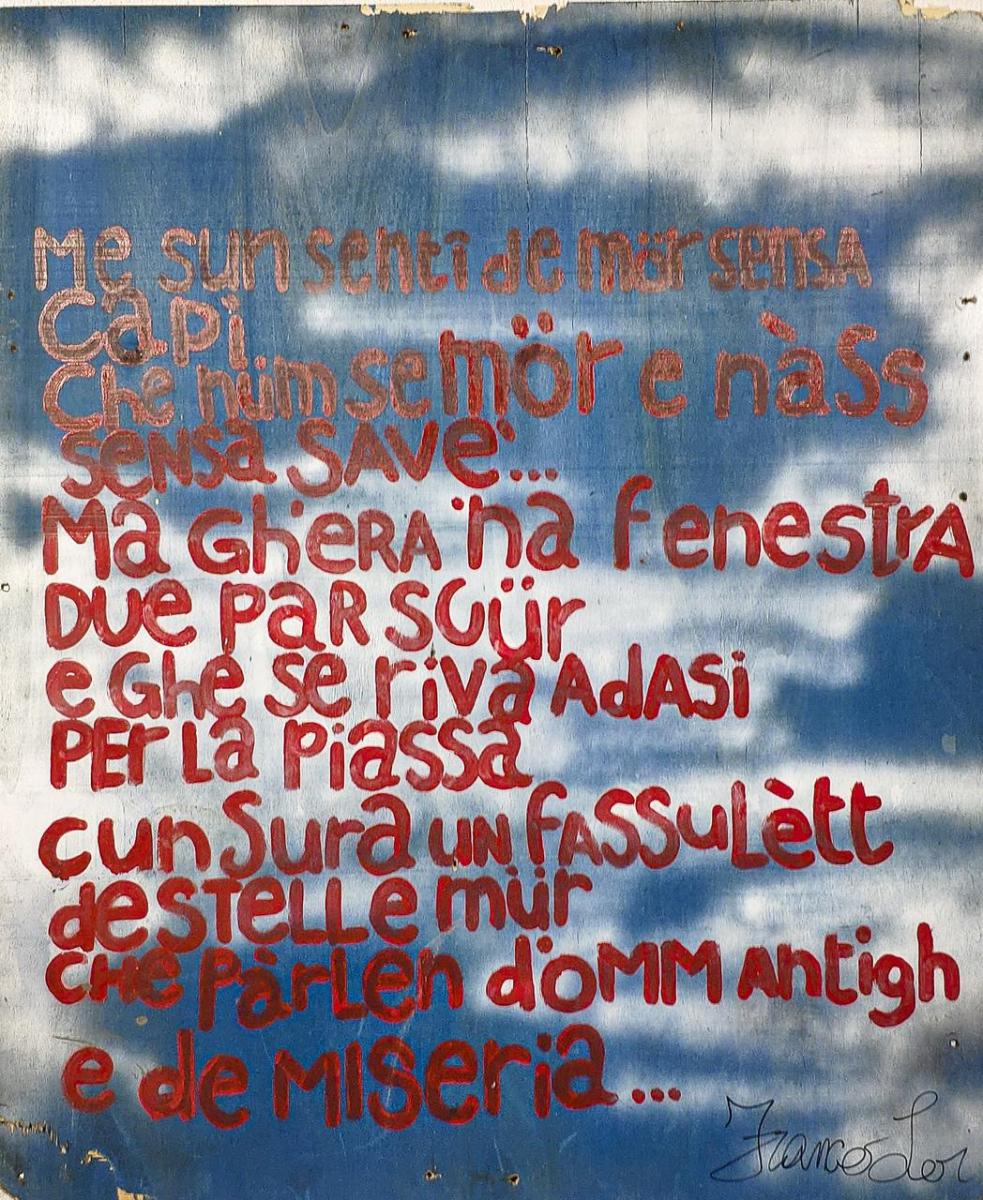 Me sun sentî de mör sensa
capi
Che nüm se mör e nàss
sensa save'...
Ma gh'era 'na fenestra
due par scür
e ghe se riva adasi
per la piassa
cun sura un fassulètt
de stelle mür
che pàrlen d'omm antigh
e de miseria...
Franco Loi